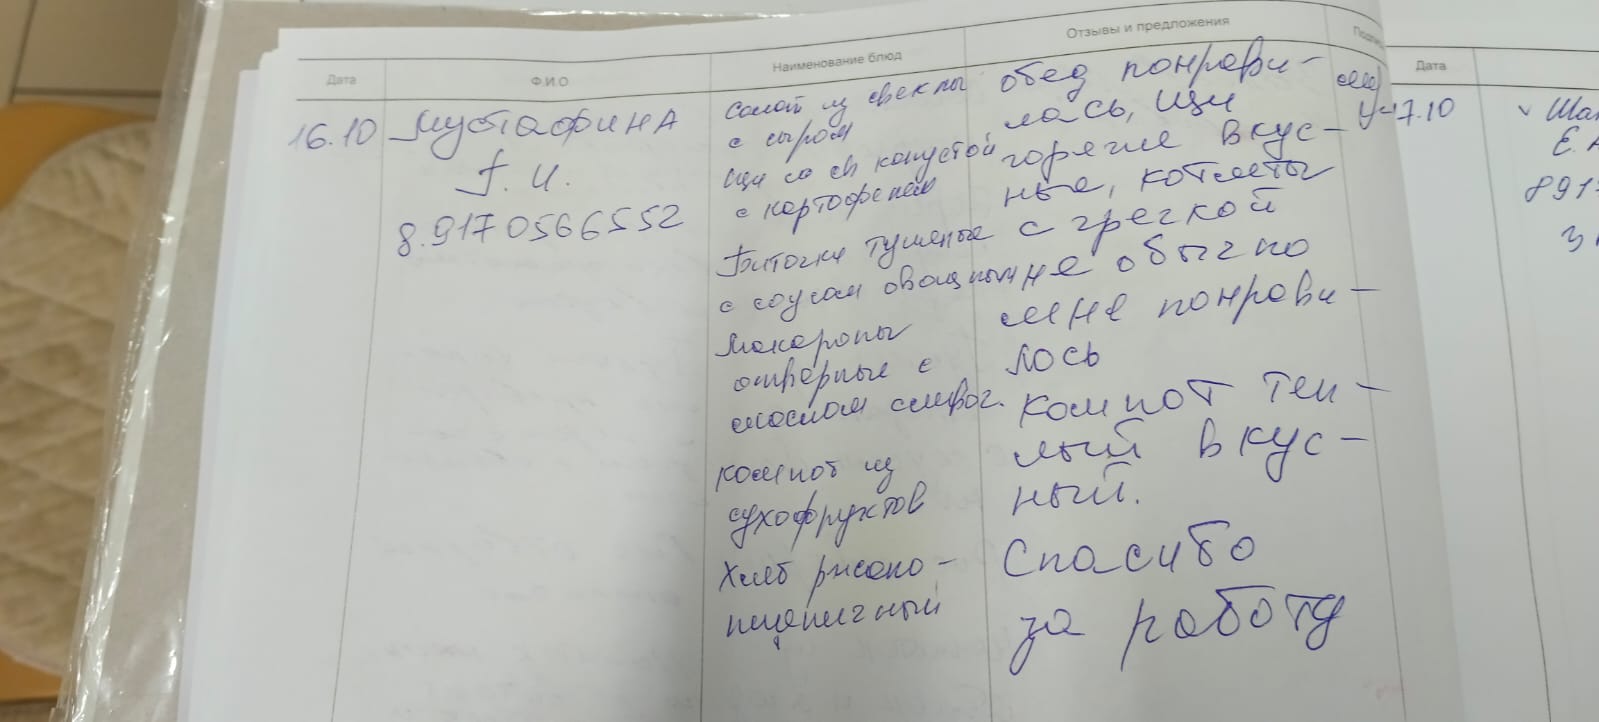 Дата
Ф.И.О
Наименование блюд
Отзывы и предложения
Дата
16.10
Мустафина
Г. И.
8.9170566552
Салат из свеклы
с сыром
Щи со св капустой
с картофелем
Биточки тушеные
с соусом овощным
Макароны
отварные с
маслом сливоч.
компот из
сухофруктов
Хлеб ржано-
пшеничный
обед понрави-
лась, щи
горячие вкус-
ные, котлеты
с гречкой
не обычно
мне понрави-
лось
компот теп-
лый вкус-
ный.
Спасибо
за работу
17.10
Е. А
891